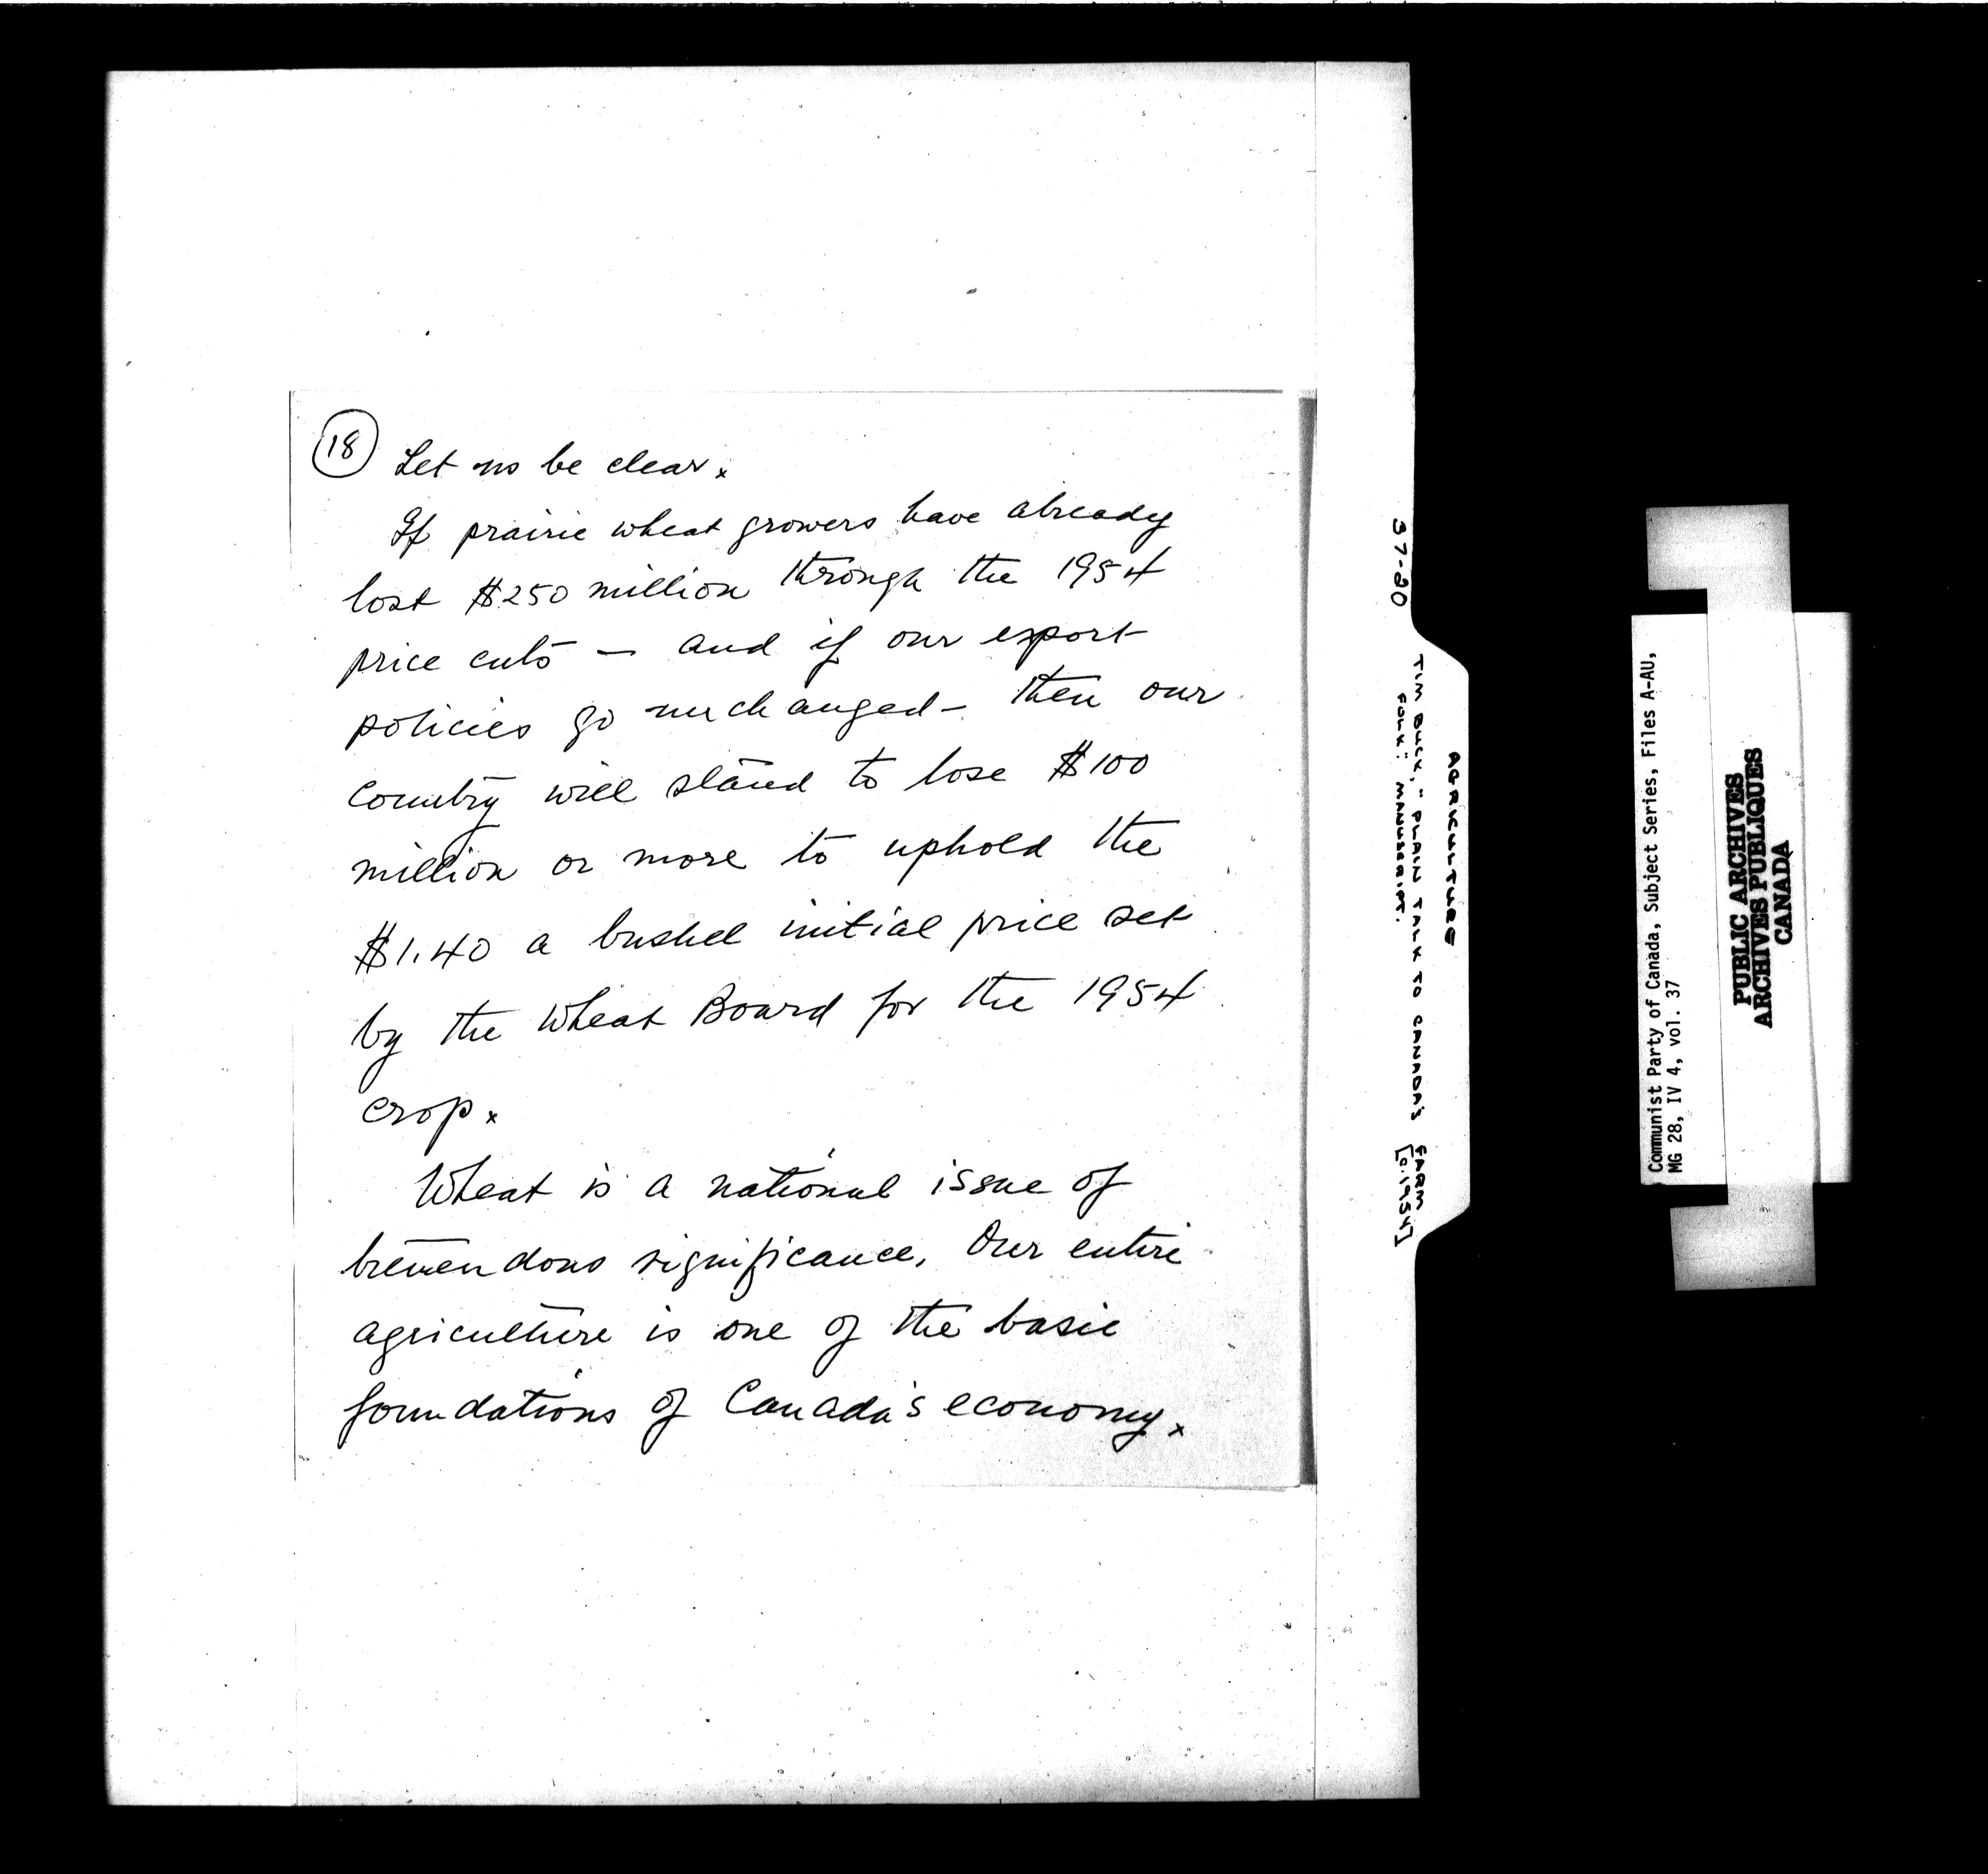 18 Let us be clear.
If prairie wheat growers have already
lost $250 million through the 1954
price cuts — and if our export
policies go unchanged — then our
country will stand to lose $100
million or more to uphold the
$1.40 a bushel initial price set
by the Wheat Board for the 1954
crop.
Wheat is a national issue of
tremendous significance. Our entire
agriculture is one of the basic
foundations of Canada's economy.
37-20
AGRICULTURE
TIM BUCK, "PLAIN TALK TO CANADA'S FARM
FOLK: MANUSCRIPT. [c.1954]
Communist Party of Canada, Subject Series, Files A-AU,
MG 28, IV 4, vol. 37
PUBLIC ARCHIVES
ARCHIVES PUBLIQUES
CANADA